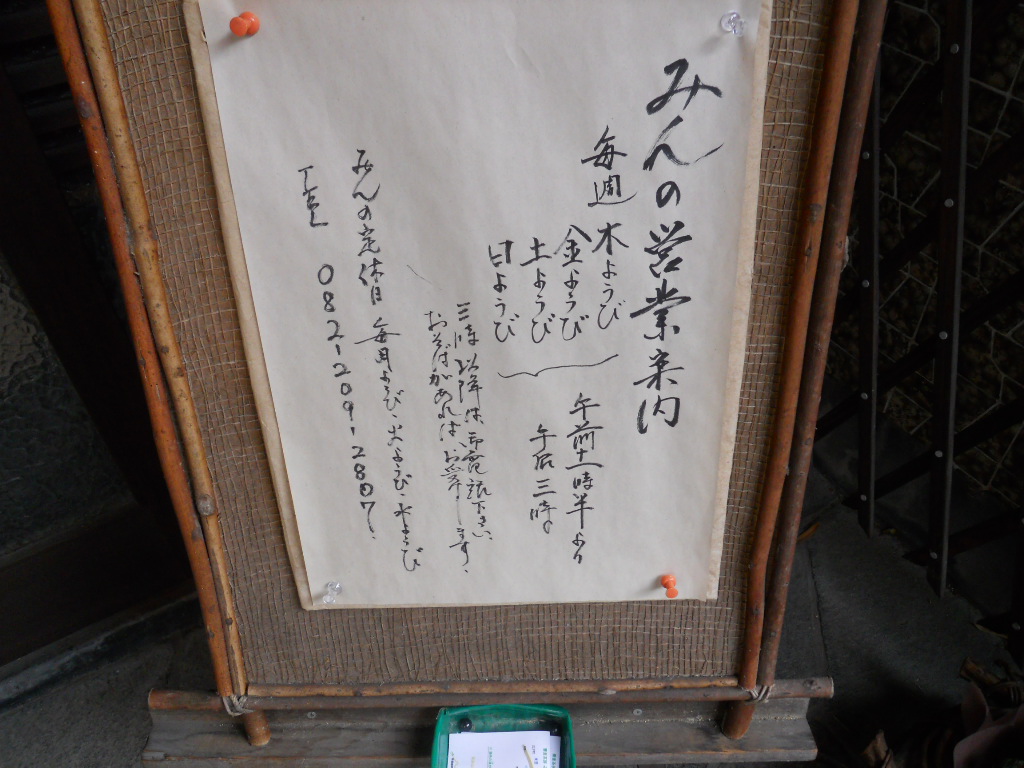 みんの営業案内
毎週
木ようび
金ようび
土ようび
日ようび
午前十一時半より
午后三時
三時以降は、お電話下さい、
おそばがあればお出しします、
みんの定休日 毎月ようび・火ようび・水ようび
TEL 082-209-2807